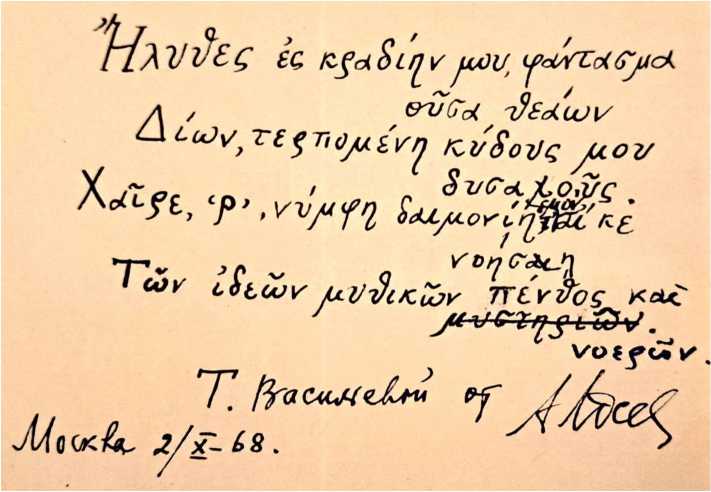 Ἤλυθες ἐς κραδίην μου, φάντασμα
οὖσα θεάων
Δίων, τερπομένη κύδους μου
δυσαχοῦς.
Χαῖρε, ‘ρ’, νύμφη δαιμονίη κε
νοήσαιη
Τῶν ἰδεῶν μυθικῶν πένθος καὶ
μυστηριῶν.
νοερῶν.
Т. Васильевой от
Москва 2/X-68.